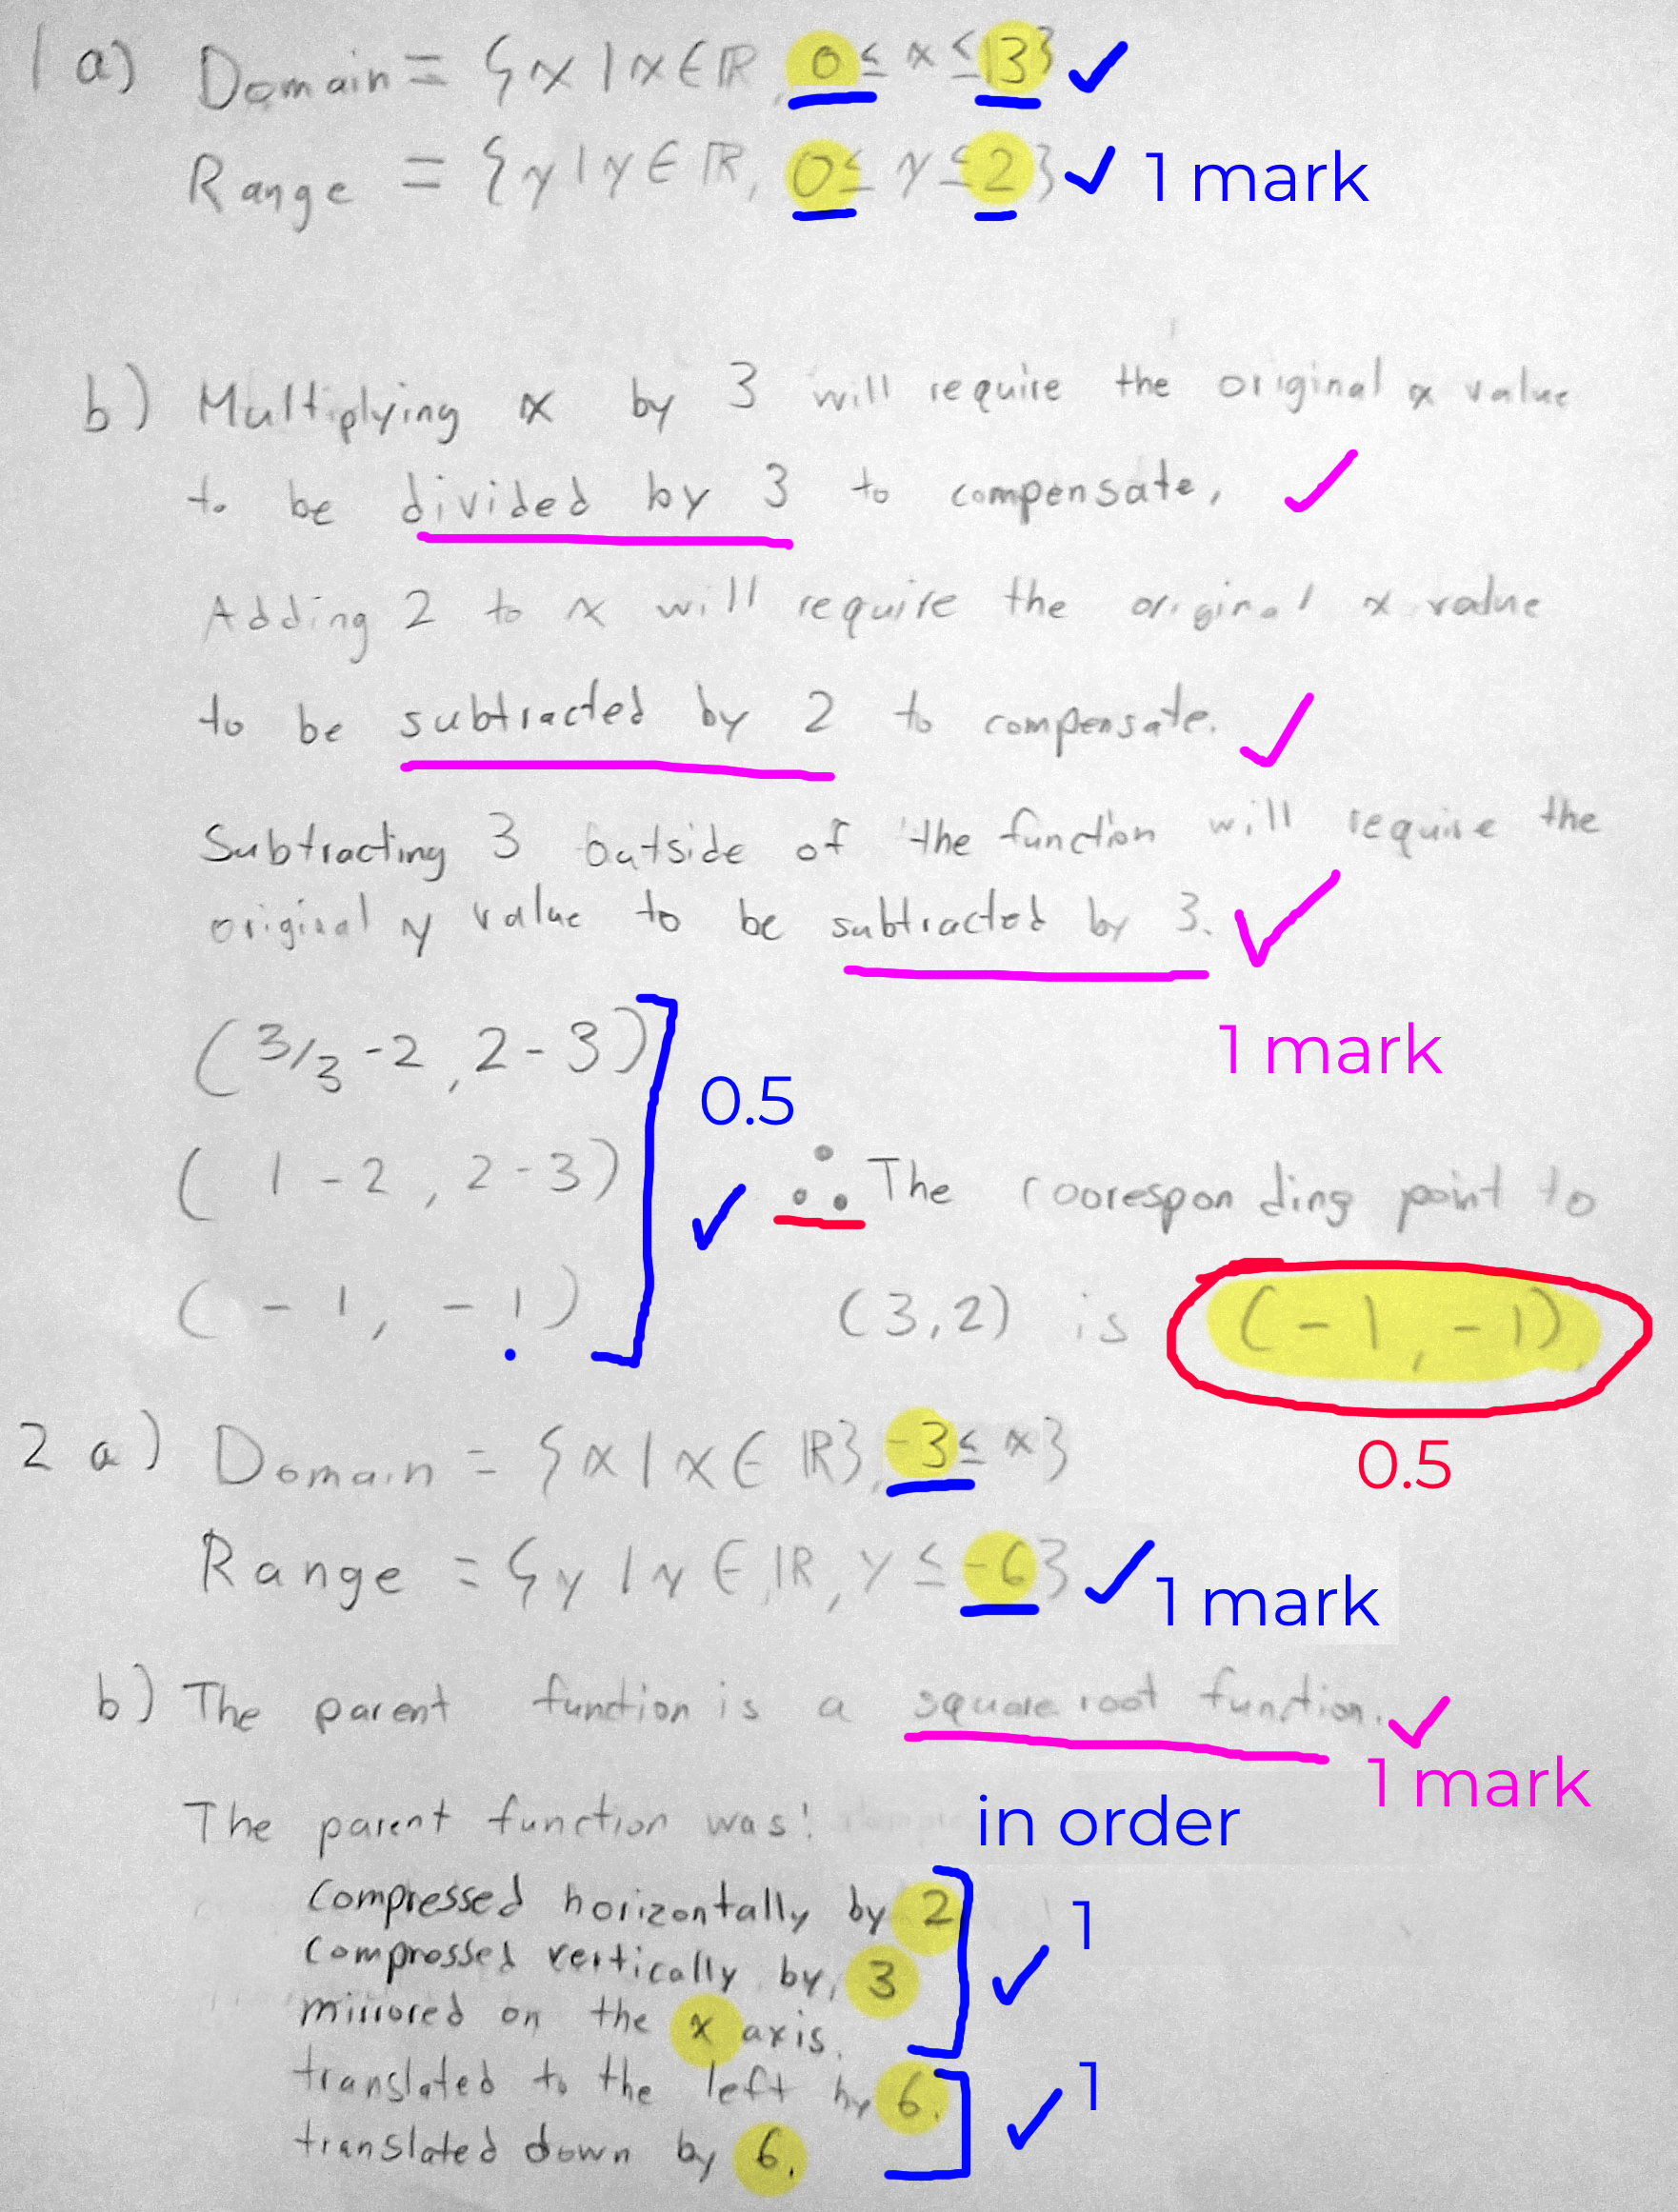 1 a) Domain = {x | x ∈ ℝ, 0 ≤ x ≤ 13} ✓
Range = {y | y ∈ ℝ, 0 ≤ y ≤ 2} ✓ 1 mark
b) Multiplying x by 3 will require the original x value
to be divided by 3 to compensate. ✓
Adding 2 to x will require the original x value
to be subtracted by 2 to compensate. ✓
Subtracting 3 outside of the function will require the
original y value to be subtracted by 3. ✓
1 mark
(3/3 - 2, 2 - 3)
0.5
(1 - 2, 2 - 3) ✓ ∴ The cooresponding point to
(-1, -1) (3,2) is (-1, -1).
0.5
2 a) Domain = {x | x ∈ ℝ}, -3 ≤ x}
Range = {y | y ∈ ℝ, y ≤ -6} ✓ 1 mark
b) The parent function is a square root function. ✓
1 mark
The parent function was: in order
compressed horizontally by 2
compressed vertically by 3 ✓ 1
mirrored on the x axis.
translated to the left by 6. ✓ 1
translated down by 6.